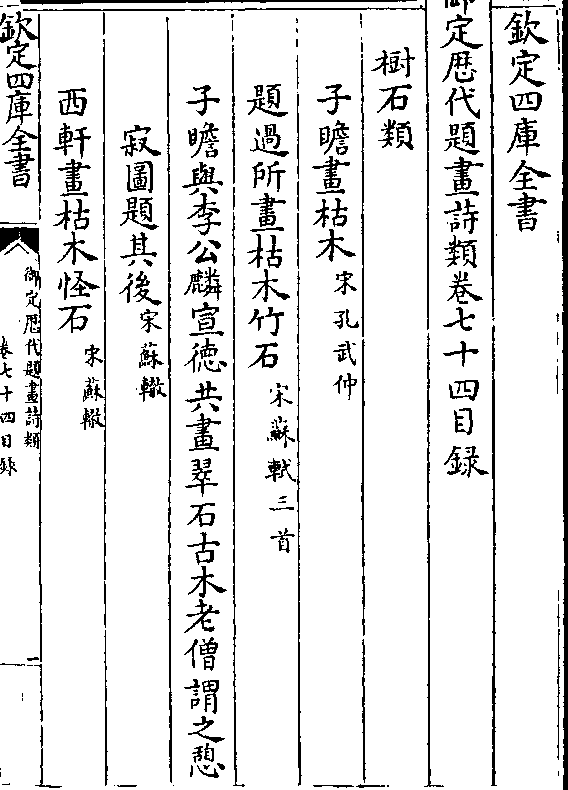 欽定四庫全書
御定歴代題畫詩類卷七十四目録
樹石類
子瞻畫枯木宋孔武仲
題過所畫枯木竹石宋蘇軾三首
子瞻與李公麟宣徳共畫翠石古木老僧謂之憩
寂圖題其後宋蘇轍
西軒畫枯木怪石宋蘇轍
欽定四庫全書
御定歴代題畫詩類
卷七十四目録
一